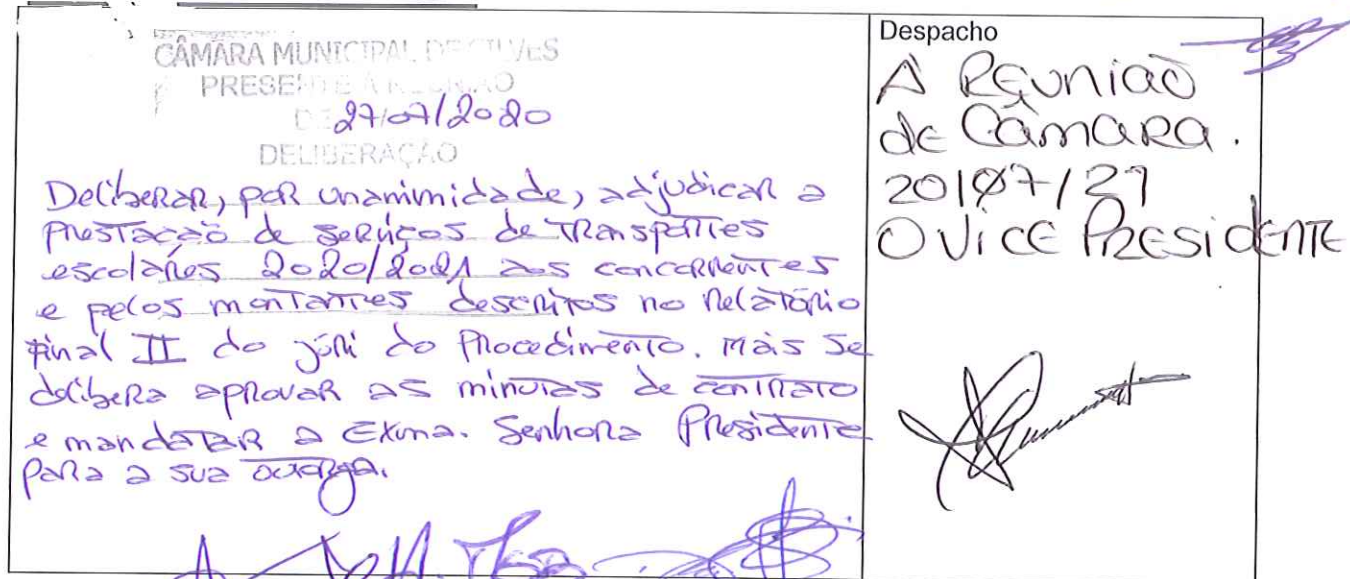 CÂMARA MUNICIPAL DE SILVES
PRESENTE À REUNIÃO
DE 27/07/2020
DELIBERAÇÃO
Deliberar, por unanimidade, adjudicar a
prestação de serviços de transportes
escolares 2020/2021 aos concorrentes
e pelos montantes descritos no relatório
final II do júri do procedimento. Mais se
delibera aprovar as minutas de contrato
e mandatar a Exma. Senhora Presidente
para a sua outorga.
Despacho
À Reunião
de Câmara.
O Vice Presidente